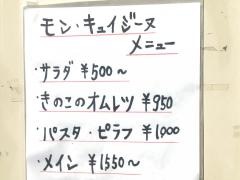 モン・キュイジーヌ
メニュー
・サラダ ¥500～
・きのこのオムレツ ¥950
・パスタ・ピラフ ¥1000
・メイン ¥1550～